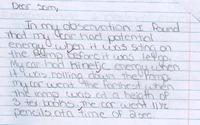 Dear Sam,
In my observation I found
that my car had potential
energy when it was siting on
the ramp before it was let go.
My car had kinetic energy when
it was rolling down the ramp.
my car went the farthest when
the ramp was at a height of
3 text books, the car went five
pencils at a time of 2 sec.